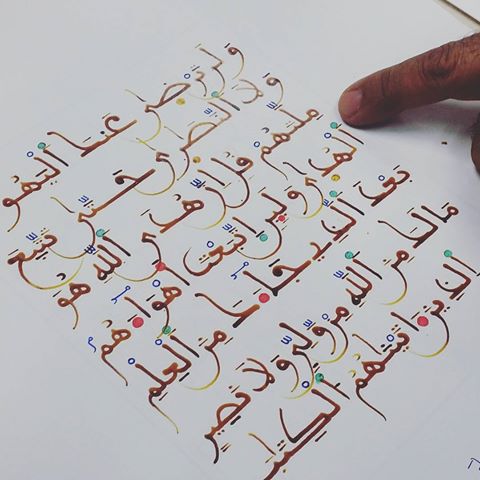 وَلَن تَرْضَىٰ عَنكَ اَ۬لْيَهُو
دُ وَلَا اَ۬لنَّصَٰرَىٰ حَتَّىٰ تَتَّبِعَ
مِلَّتَهُمْ قُلِ اِنَّ هُدَى اَ۬للَّهِ هُوَ
اَ۬لْهُدَىٰ وَلَئِنِ اِ۪تَّبَعْتَ أَهْوَآءَهُم
بَعْدَ اَ۬لذِے جَآءَكَ مِنَ اَ۬لْعِلْمِ
مَا لَكَ مِنَ اَ۬للَّهِ مِنْ وَّلِيّٖ وَلَا نَصِيرٍ
اِ۬لذِينَ ءَاتَيْنَٰهُمُ اُ۬لْكِتَٰبَ